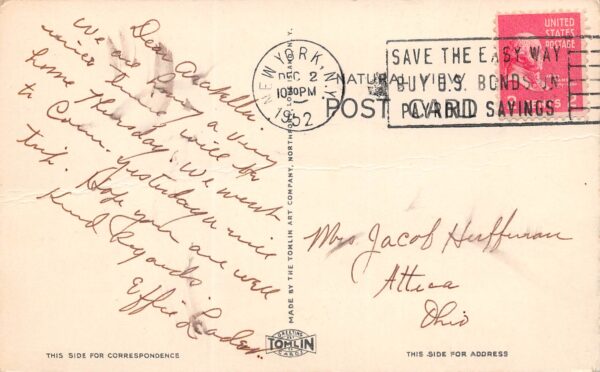 Dear Archellai
We are having a very
nice time will be
home Thursday. We went
to Conn. yesterday a nice
trip. Hope you are well
Kind Regards
Effie Lader.
NEW YORK, N.Y.
DEC 2
1030PM
1952
SAVE THE EASY WAY
BUY U.S. BONDS IN
PAYROLL SAVINGS
UNITED
STATES
POSTAGE
NATURAL VIEWS
POST CARD
MADE BY THE TOMLIN ART COMPANY, NORTHPORT, LONG ISLAND, N.Y.
Mrs Jacob Huffman
Attica
Ohio
THIS SIDE FOR CORRESPONDENCE
GREETING
TOMLIN
CARDS
THIS SIDE FOR ADDRESS